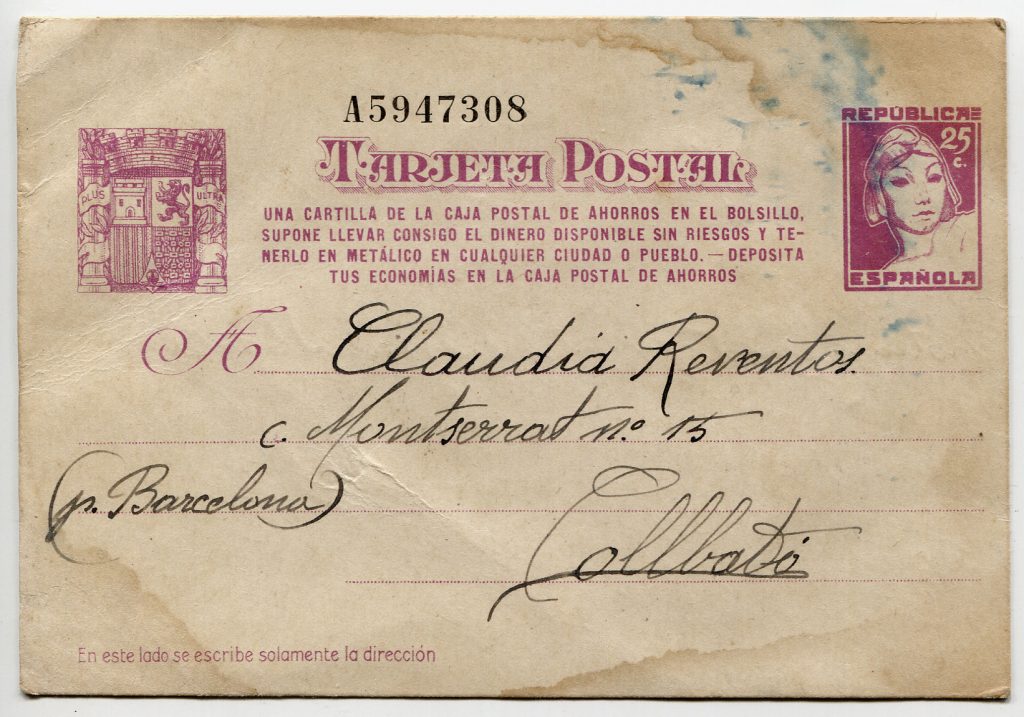 A5947308
TARJETA POSTAL
REPÚBLICA
25
c.
PLUS ULTRA
UNA CARTILLA DE LA CAJA POSTAL DE AHORROS EN EL BOLSILLO,
SUPONE LLEVAR CONSIGO EL DINERO DISPONIBLE SIN RIESGOS Y TE-
NERLO EN METÁLICO EN CUALQUIER CIUDAD O PUEBLO.—DEPOSITA
TUS ECONOMÍAS EN LA CAJA POSTAL DE AHORROS
ESPAÑOLA
A Claudia Reventos.
c. Montserrat nº 15
(p. Barcelona)
Collbató
En este lado se escribe solamente la dirección